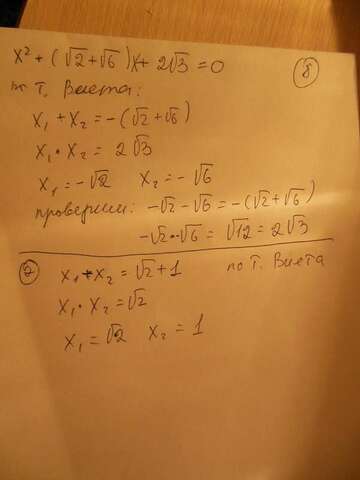 x² + (√2+√6)x + 2√3 = 0 ⑧
по т. Виета:
x₁ + x₂ = -(√2+√6)
x₁ · x₂ = 2√3
x₁ = -√2 x₂ = -√6
проверим: -√2 - √6 = -(√2+√6)
-√2 · -√6 = √12 = 2√3
⑦ x₁ + x₂ = √2 + 1 по т. Виета
x₁ · x₂ = √2
x₁ = √2 x₂ = 1